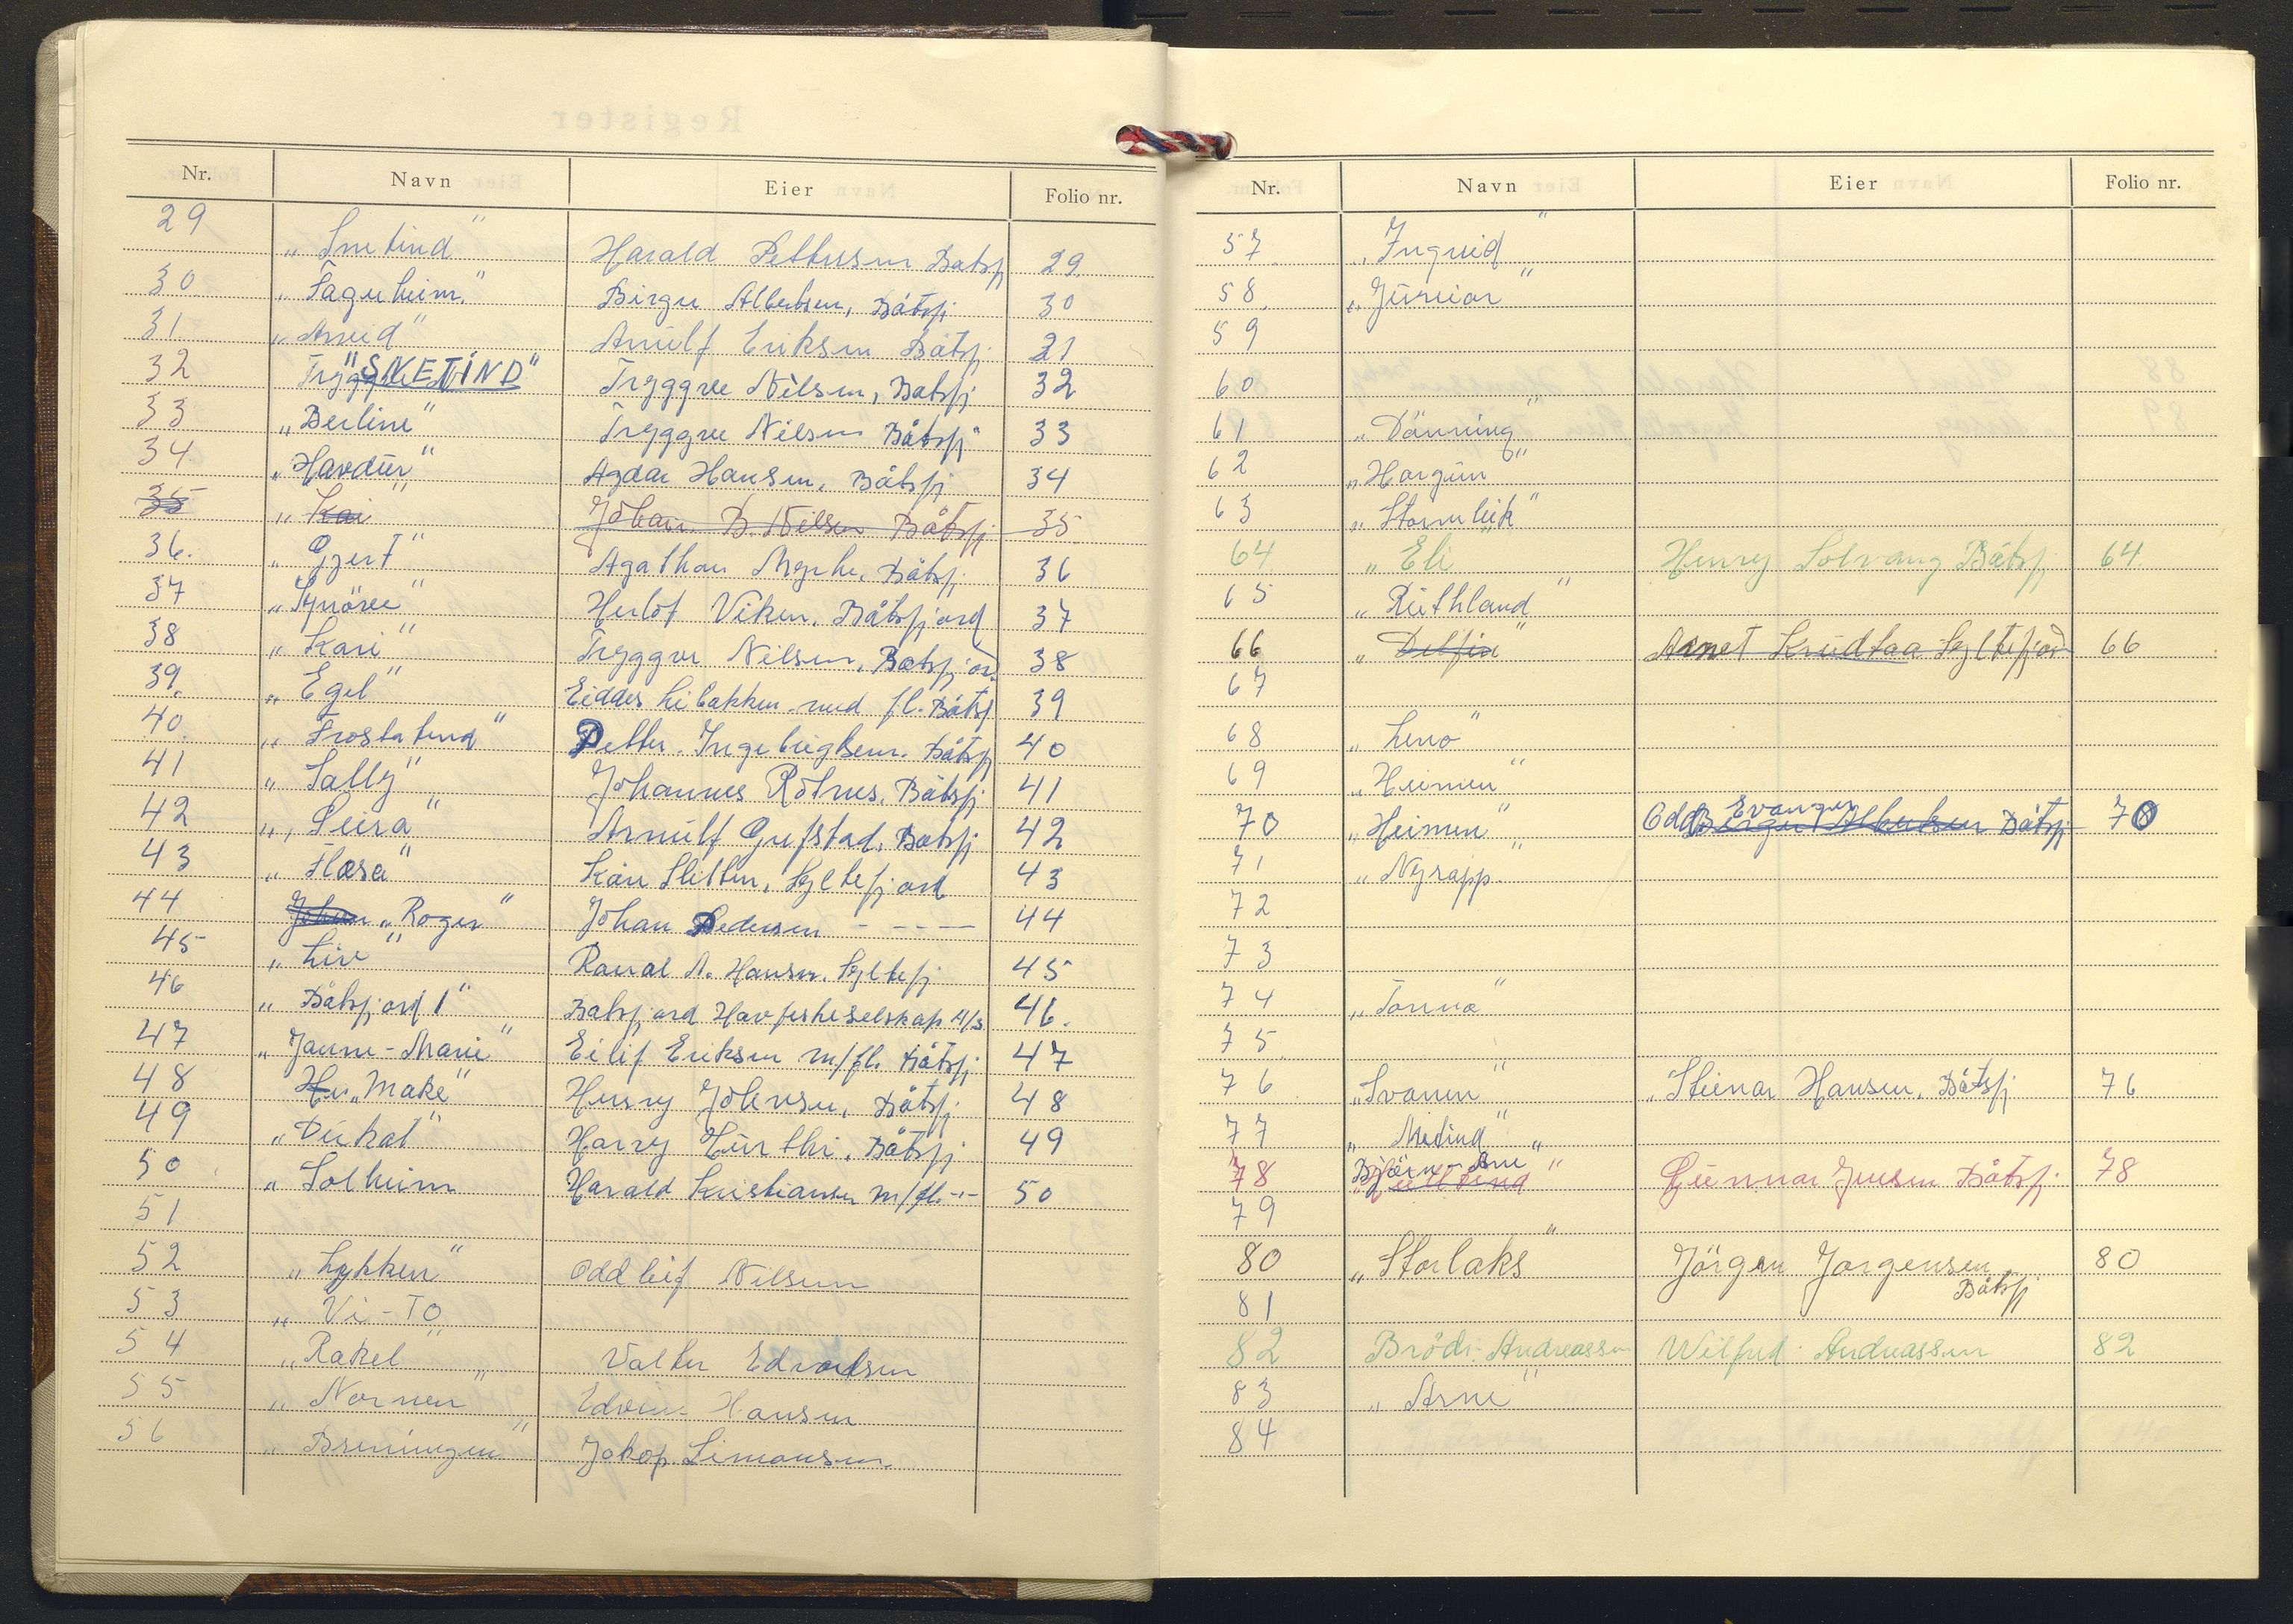 Register
Nr. Navn Eier Folio nr.
29 „Snetind" Harald Pettersen Båtsfj 29.
30 „Fagerheim." Birger Albertsen, Båtsfj 30
31 „Arvid" Arnulf Eriksen Båtsfj. 31
32 Tryggve N "SNETIND" Tryggve Nilsen, Båtsfj 32
33 „Berline" Tryggve Nilsen Båtsfj 33
34 „Havdur" Agdar Hansen. Båtsfj 34
35 „Kai" Johan. B. Nilsen Båtsfj 35
36. „Gjert" Agathon Myrhe, Båtsfj. 36
37 „Synöve" Herlof Viken. Båtsfjord 37
38 „Kari" Tryggve Nilsen, Båtsfjord. 38
39. „Egil" Eidder Libakken med fl. Båtsfj 39
40. „Frostatind" Petter. Ingebrigtsen. Båtsfj 40
41 „Sally" Johannes Rotnes, Båtsfj. 41
42 „Leira" Arnulf Gufstad, Båtsfj 42
43 „Flæsa" Kåre Sletten, Syltefjord 43
44 Johan „Roger" Johan Pedersen - - - - 44
45 „Liv" Ranal A. Hansen. Syltefj 45
46 „Båtsfjord 1" Båtsfjord Havfiskeselskap A/S 46.
47 „Janne-Marie" Eilif Eriksen m/fl. Båtsfj. 47
48 He „Make" Henry Johnsen, Båtsfj. 48
49 „Dukat" Harry Hurthi, Båtsfj. 49
50 „Solheim Harald Kristiansen m/fl. -"- 50
51
52 „Lykken" Oddleif Nilsen
53 „Vi-To
54 „Rakel" Valter Edvardsen
55 „Nornen" Edvin Hansen
56 „Breningen" Jakop Simonsen.
Nr. Navn Eier Folio nr.
57. „Ingrid"
58. „Junior"
59
60
61 „Dönning"
62 „Hargun"
63 „Stormleik"
64 „Eli" Henry Solvang Båtsfj 64.
65 „Ruthland"
66 „Delfin" Arnet Krudtaa Syltefjord 66
67
68 „Leno"
69 „Heimen"
70 „Heimen" Odd Evanger Birger Albertsen Båtsfj 70
71 „Nyrapp."
72
73
74 „Tonna"
75.
76 „Svanen" „Steinar Hansen, Båtsfj 76
77 „Metind"
78 Björn-Arne" „Gulltind" Gunnar Jensen Båtsfj. 78
79
80 „Storlaks" Jörgen Jørgensen, Båtsfj 80
81
82 Brödr. Andreassen Wilfred Andreassen 82
83 „Arne"
84